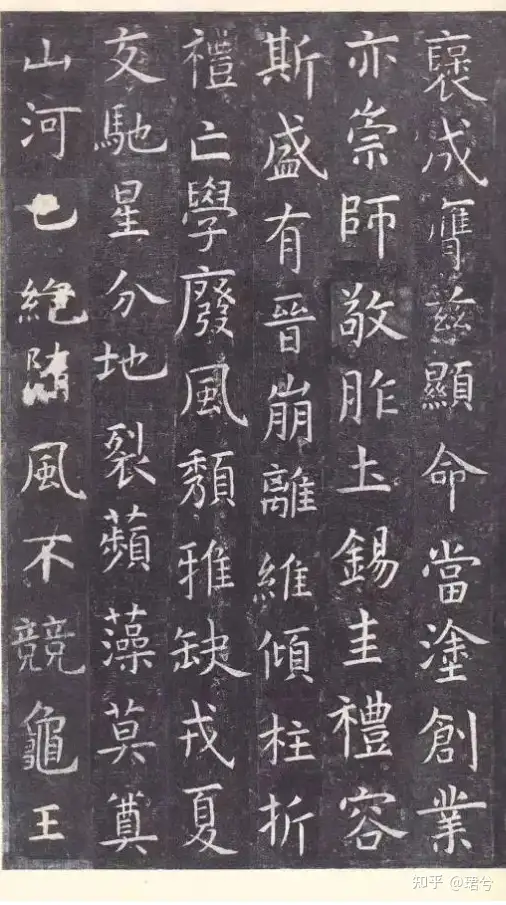 褒成膺兹顯命當塗創業
亦崇師敬胙土錫圭禮容
斯盛有晉崩離維傾柱折
禮亡學廢風頽雅缺戎夏
交馳星分地裂蘋藻莫奠
山河已絶隋風不競龜王
知乎 @珺兮